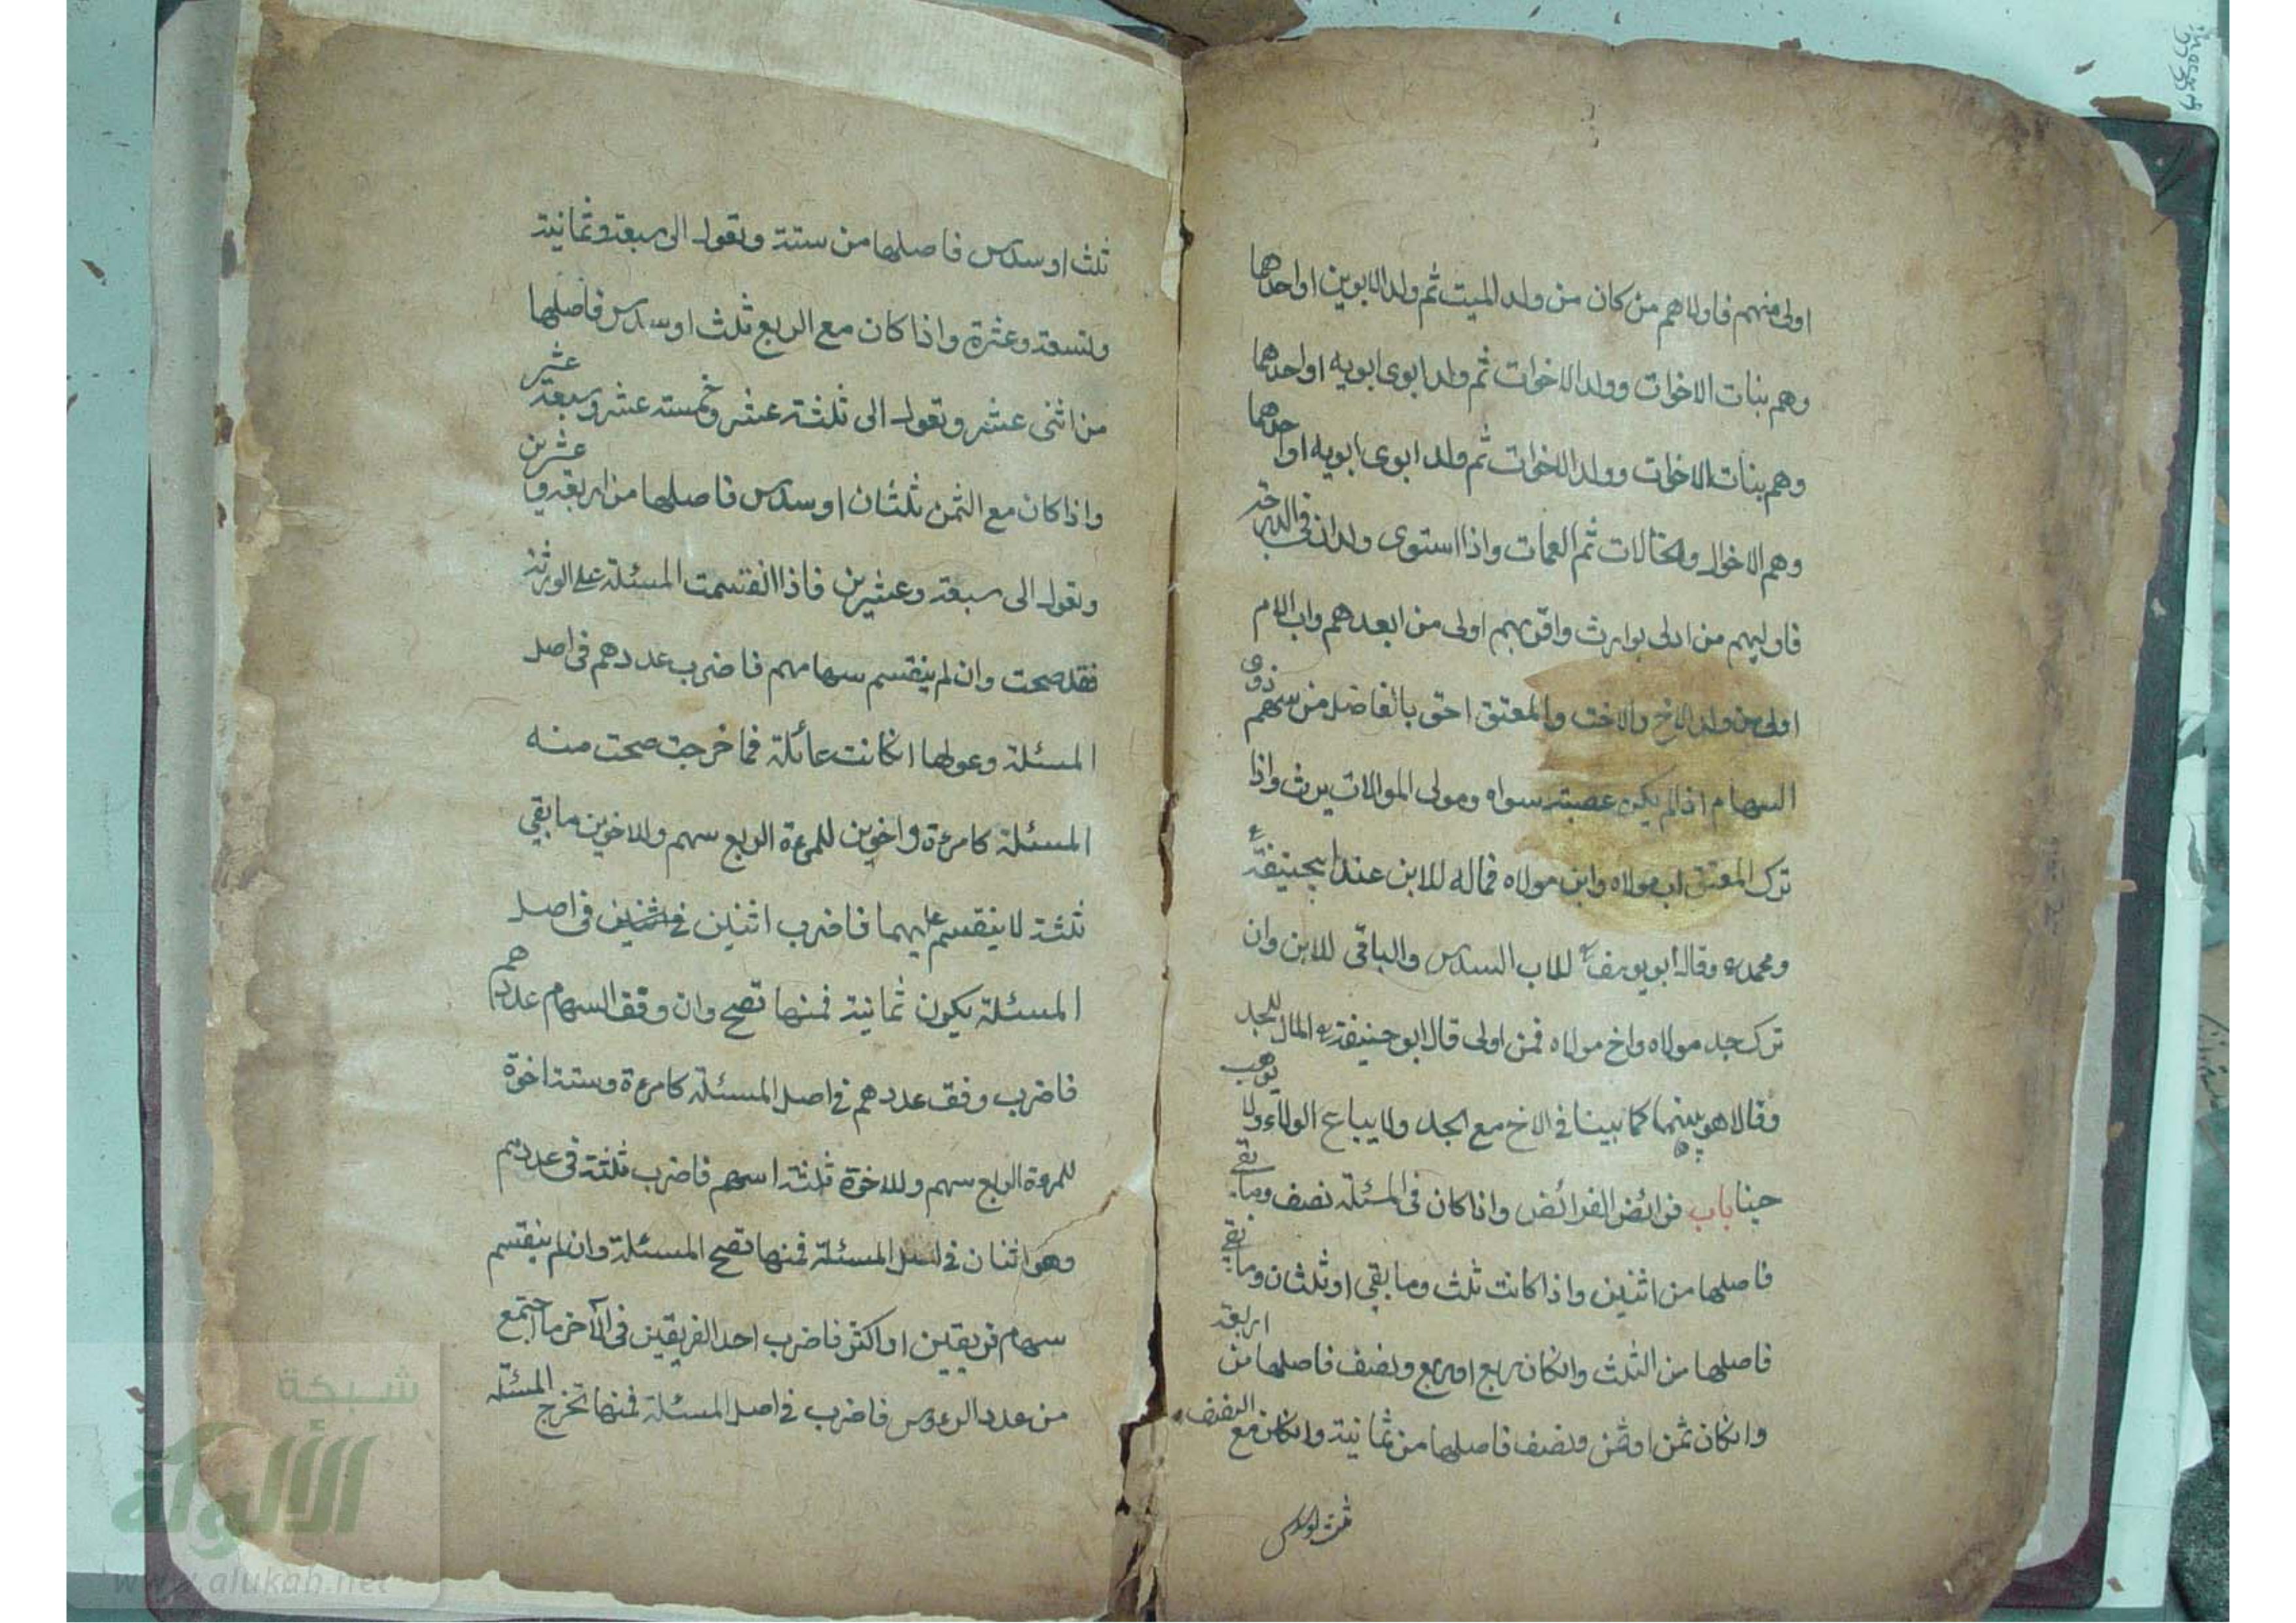 اولى منهم فاولاهم من كان من ولد الميت ثم ولد الابوين او احدهما
وهم بنات الاخوات وولد الاخوات ثم ولد ابوى ابويه او احدهما
وهم بنات الاخوات وولد الاخوات ثم ولد ابوى ابويه او احدهما
وهم الاخوال والخالات ثم العمات واذا استوى ولدان فى الدرجة
فاوليهم من ادلى بوارث واقربهم اولى من ابعدهم واب الام
اولى من ولد الاخ والاخت والمعتق احق بالفاضل من سهم ذوى
السهام اذا لم يكن عصبته سواه ومولى الموالات يرث واذا
ترك المعتق اب مولاه وابن مولاه فماله للابن عند ابيحنيفة
ومحمد وقال ابو يوسف للاب السدس والباقى للابن وان
ترك جد مولاه واخ مولاه فمن اولى قال ابو حنيفة المال للجد
وقالا هو بينهما كما بينا فى الاخ مع الجد ولا يباع الولاء ولا يوهب
باب فرائض الفرائض واذا كان فى المسئلة نصف وما بقي
فاصلها من اثنين واذا كانت ثلث وما بقي او ثلثان وما بقي
فاصلها من الثلث وانكان ربع او ربع ونصف فاصلها من اربعة
وانكان ثمن او ثمن ونصف فاصلها من ثمانية وانكان مع النصف
ثلث او سدس
ثلث او سدس فاصلها من ستة وتعول الى سبعة وثمانية
وتسعة وعشرة واذا كان مع الربع ثلث او سدس فاصلها
من اثنى عشر وتعول الى ثلثة عشر وخمسته عشر وسبعة عشر
واذا كان مع الثمن ثلثان او سدس فاصلها من اربعة و عشرين
وتعول الى سبعة وعشرين فاذا انقسمت المسئلة على الورثة
فقد صحت وان لم ينقسم سهامهم فاضرب عددهم فى اصل
المسئلة وعولها انكانت عائلة فما خرجت صحت منه
المسئلة كامرءة واخوين للمرءة الربع سهم وللاخوين ما بقي
ثلثة لا ينقسم عليهما فاضرب اثنين فى اصل
المسئلة يكون ثمانية فمنها تصح وان وفق السهام عددهم
فاضرب وفق عددهم فى اصل المسئلة كامرءة وستة اخوة
للمرءة الربع سهم وللاخوة ثلثة اسهم فاضرب ثلثة فى عددهم
وهو اثنان فى اصل المسئلة فمنها تصح المسئلة وان لم ينقسم
سهام فريقين او اكثر فاضرب احد الفريقين فى الآخر ما اجتمع
من عدد الرءوس فاضرب فى اصل المسئلة فمنها تخرج المسئلة
شبكة
الألوكة
www.alukah.net